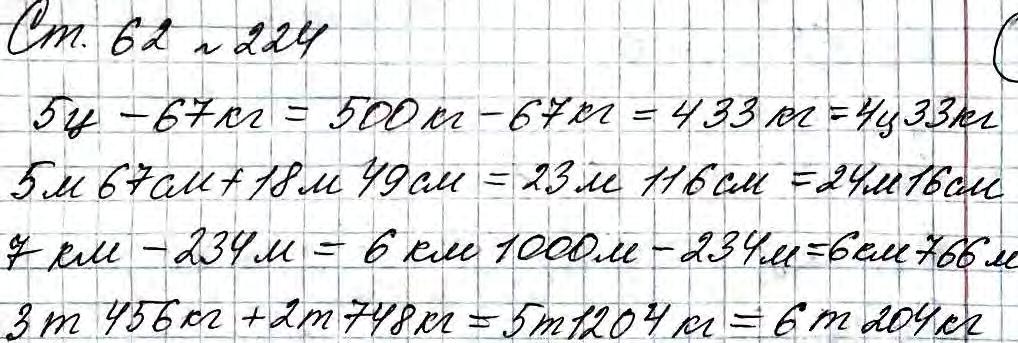 Ст. 62 № 224
5ц - 67кг = 500кг - 67кг = 433 кг = 4ц 33кг
5м 67см + 18м 49см = 23м 116см = 24м 16см
7 км - 234м = 6 км 1000м - 234м = 6км 766м
3т 456кг + 2т 748кг = 5т 1204 кг = 6т 204кг